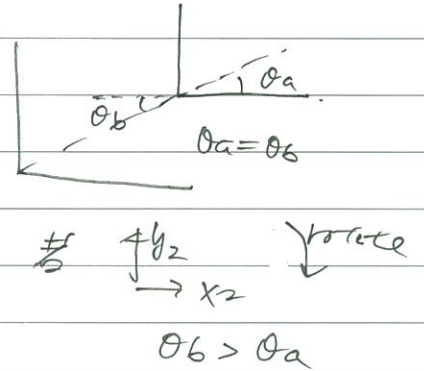 θa
θb
θa=θb
y2
rotate
x2
θb > θa